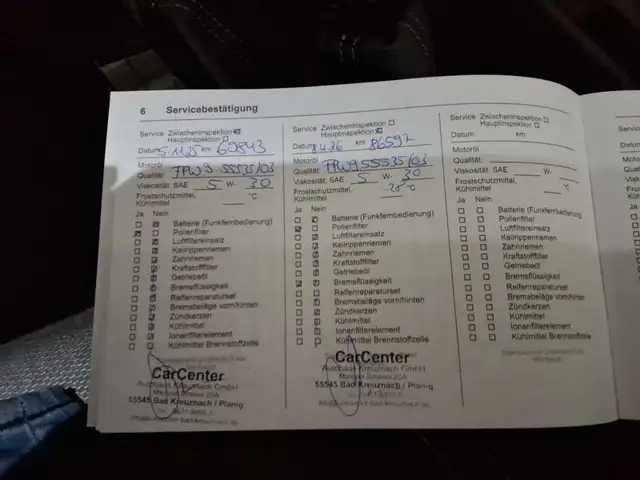 6 Servicebestätigung
Service Zwischeninspektion
Hauptinspektion
Datum 5.11.25 km 60843
Motoröl
Qualität:
Viskosität: SAE 5 W- 30
Frostschutzmittel, °C
Kühlmittel
Ja Nein
Batterie (Funkfernbedienung)
Pollenfilter
Luftfiltereinsatz
Keilrippenriemen
Zahnriemen
Kraftstofffilter
Getriebeöl
Bremsflüssigkeit
Reifenreparaturset
Bremsbeläge vorn/hinten
Zündkerzen
Kühlmittel
Ionenfilterelement
Kühlmittel Brennstoffzelle
CarCenter
Autohaus Kreuznach GmbH
55545 Bad Kreuznach / Planig
Service Zwischeninspektion
Hauptinspektion
Datum km 86592
Motoröl
Qualität:
Viskosität: SAE 5 W- 30
Frostschutzmittel, °C
Kühlmittel
Ja Nein
Batterie (Funkfernbedienung)
Pollenfilter
Luftfiltereinsatz
Keilrippenriemen
Zahnriemen
Kraftstofffilter
Getriebeöl
Bremsflüssigkeit
Reifenreparaturset
Bremsbeläge vorn/hinten
Zündkerzen
Kühlmittel
Ionenfilterelement
Kühlmittel Brennstoffzelle
CarCenter
Autohaus Kreuznach GmbH
55545 Bad Kreuznach / Planig
Service Zwischeninspektion
Hauptinspektion
Datum km
Motoröl
Qualität:
Viskosität: SAE W-
Frostschutzmittel, °C
Kühlmittel
Ja Nein
Batterie (Funkfernbedienung)
Pollenfilter
Luftfiltereinsatz
Keilrippenriemen
Zahnriemen
Kraftstofffilter
Getriebeöl
Bremsflüssigkeit
Reifenreparaturset
Bremsbeläge vorn/hinten
Zündkerzen
Kühlmittel
Ionenfilterelement
Kühlmittel Brennstoffzelle